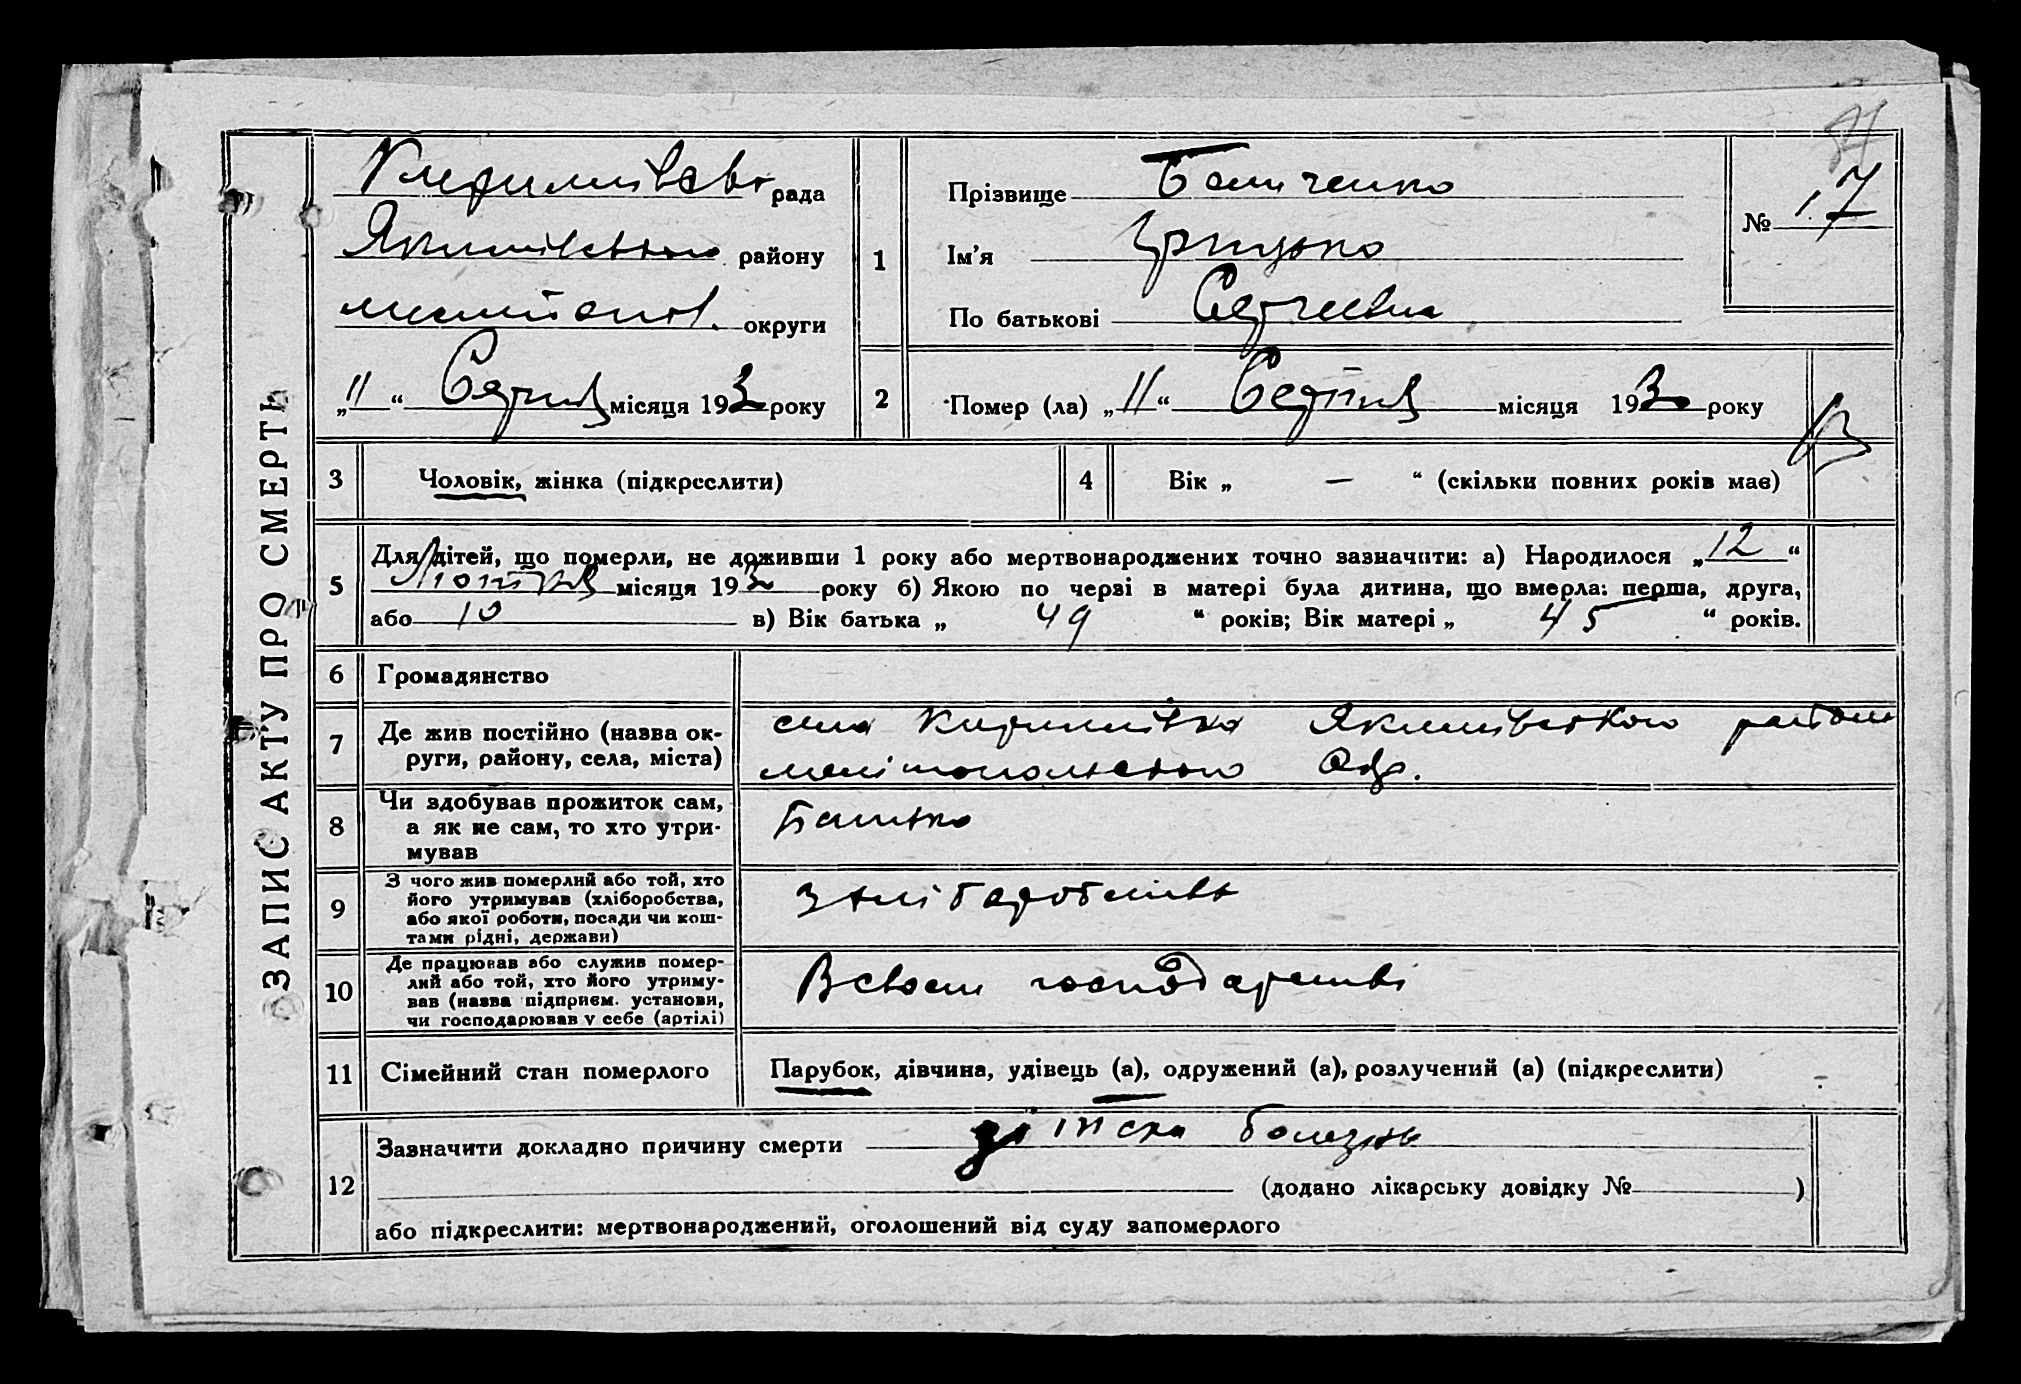 ЗАПИС АКТУ ПРО СМЕРТЬ
рада
Якимівського району
округи
„11“ Серпня місяця 1930 року
1
Прізвище
Ім'я Грицько
По батькові Сергеевич
№ 17
2
Помер (ла) „11“ Серпня місяця 1930 року
3
Чоловік, жінка (підкреслити)
4
Вік „ — “ (скільки повних років має)
5
Для дітей, що померли, не доживши 1 року або мертвонароджених точно зазначити: а) Народилося „12“
Лютня місяця 1930 року б) Якою по черзі в матері була дитина, що вмерла: перша, друга,
або 10 в) Вік батька „ 49 “ років; Вік матері „ 45 “ років.
6
Громадянство
7
Де жив постійно (назва ок-
руги, району, села, міста)
село Кирилівка Якимівського району
мелітопольського Окр.
8
Чи здобував прожиток сам,
а як не сам, то хто утри-
мував
Батько
9
З чого жив померлий або той, хто
його утримував (хліборобства,
або якої роботи, посади чи кош-
тами рідні, держави)
З хліборобства
10
Де працював або служив помер-
лий або той, хто його утриму-
вав (назва підприєм. установи,
чи господарював у себе (артілі)
В своем господарстві
11
Сімейний стан померлого
Парубок, дівчина, удівець (а), одружений (а), розлучений (а) (підкреслити)
12
Зазначити докладно причину смерти дітска болезнь
(додано лікарську довідку № )
або підкреслити: мертвонароджений, оголошений від суду запомерлого